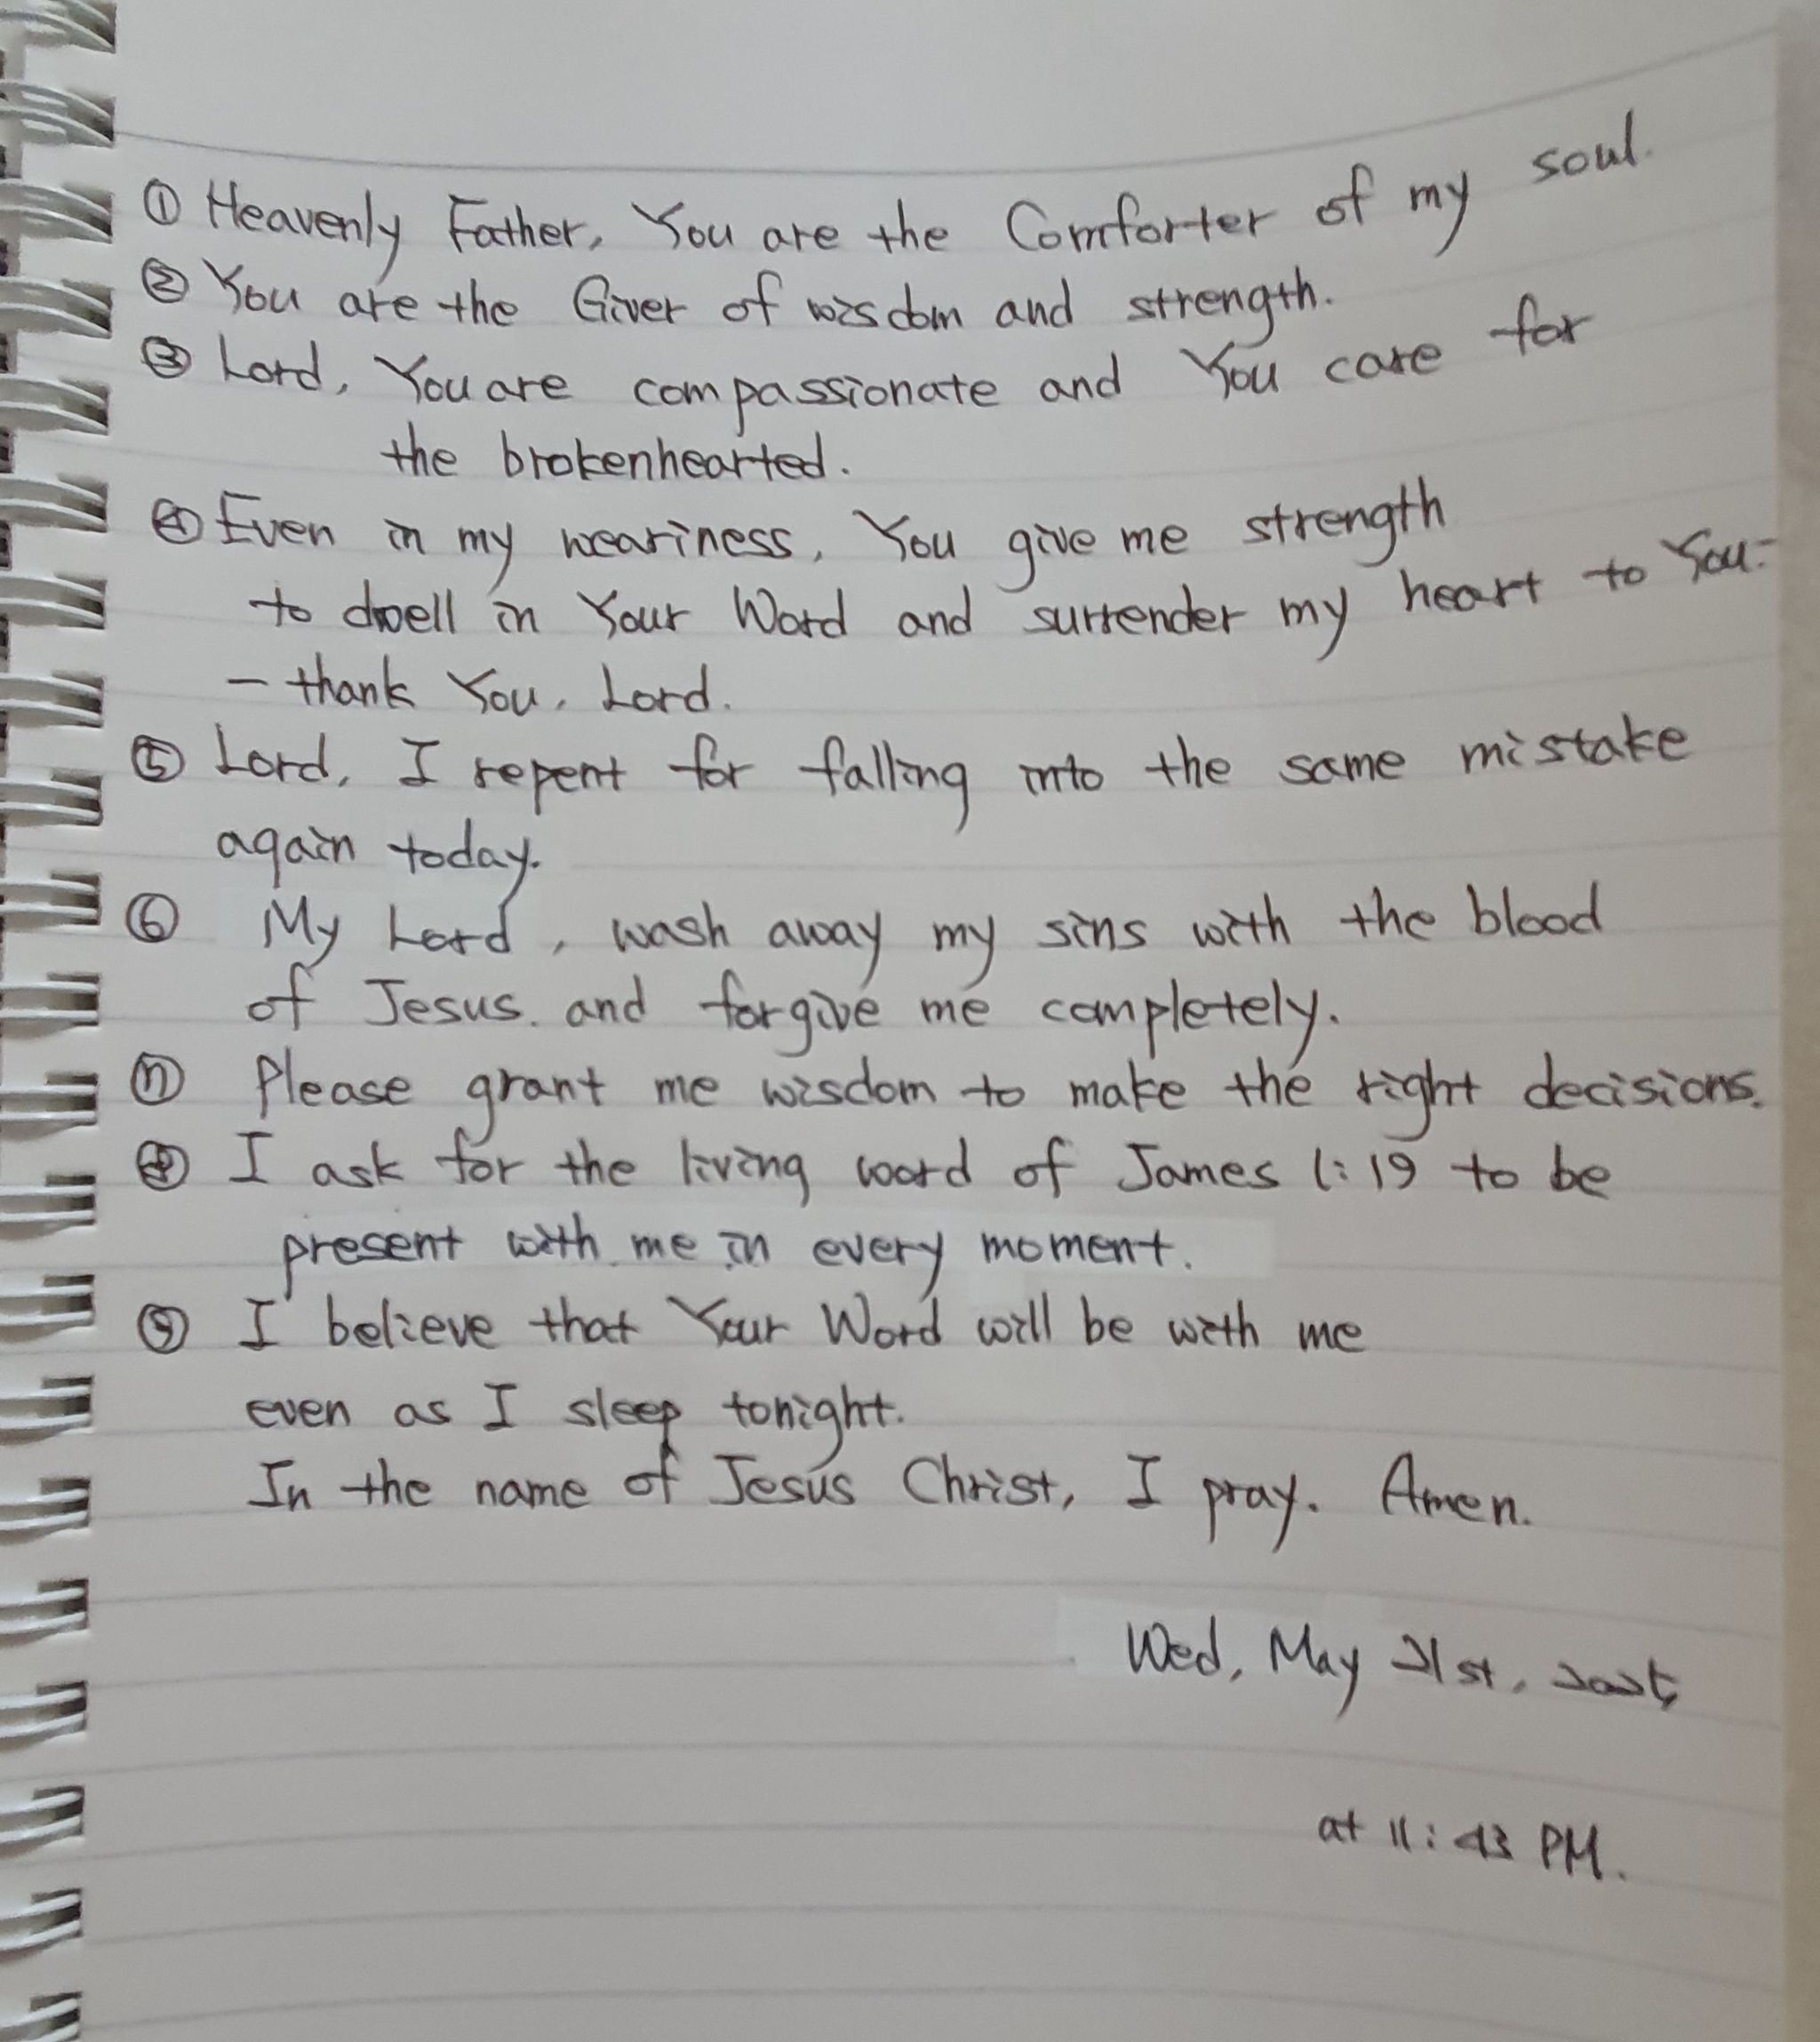 ① Heavenly Father, You are the Comforter of my soul.
② You are the Giver of wisdom and strength.
③ Lord, You are compassionate and You care for
the brokenhearted.
④ Even in my weariness, You give me strength
to dwell in Your Word and surrender my heart to You-
- thank You, Lord.
⑤ Lord, I repent for falling into the same mistake
again today.
⑥ My Lord, wash away my sins with the blood
of Jesus. and forgive me completely.
⑦ Please grant me wisdom to make the right decisions.
⑧ I ask for the living word of James 1:19 to be
present with me in every moment.
⑨ I believe that Your Word will be with me
even as I sleep tonight.
In the name of Jesus Christ, I pray. Amen.
Wed, May 21st, 2025
at 11:43 PM.